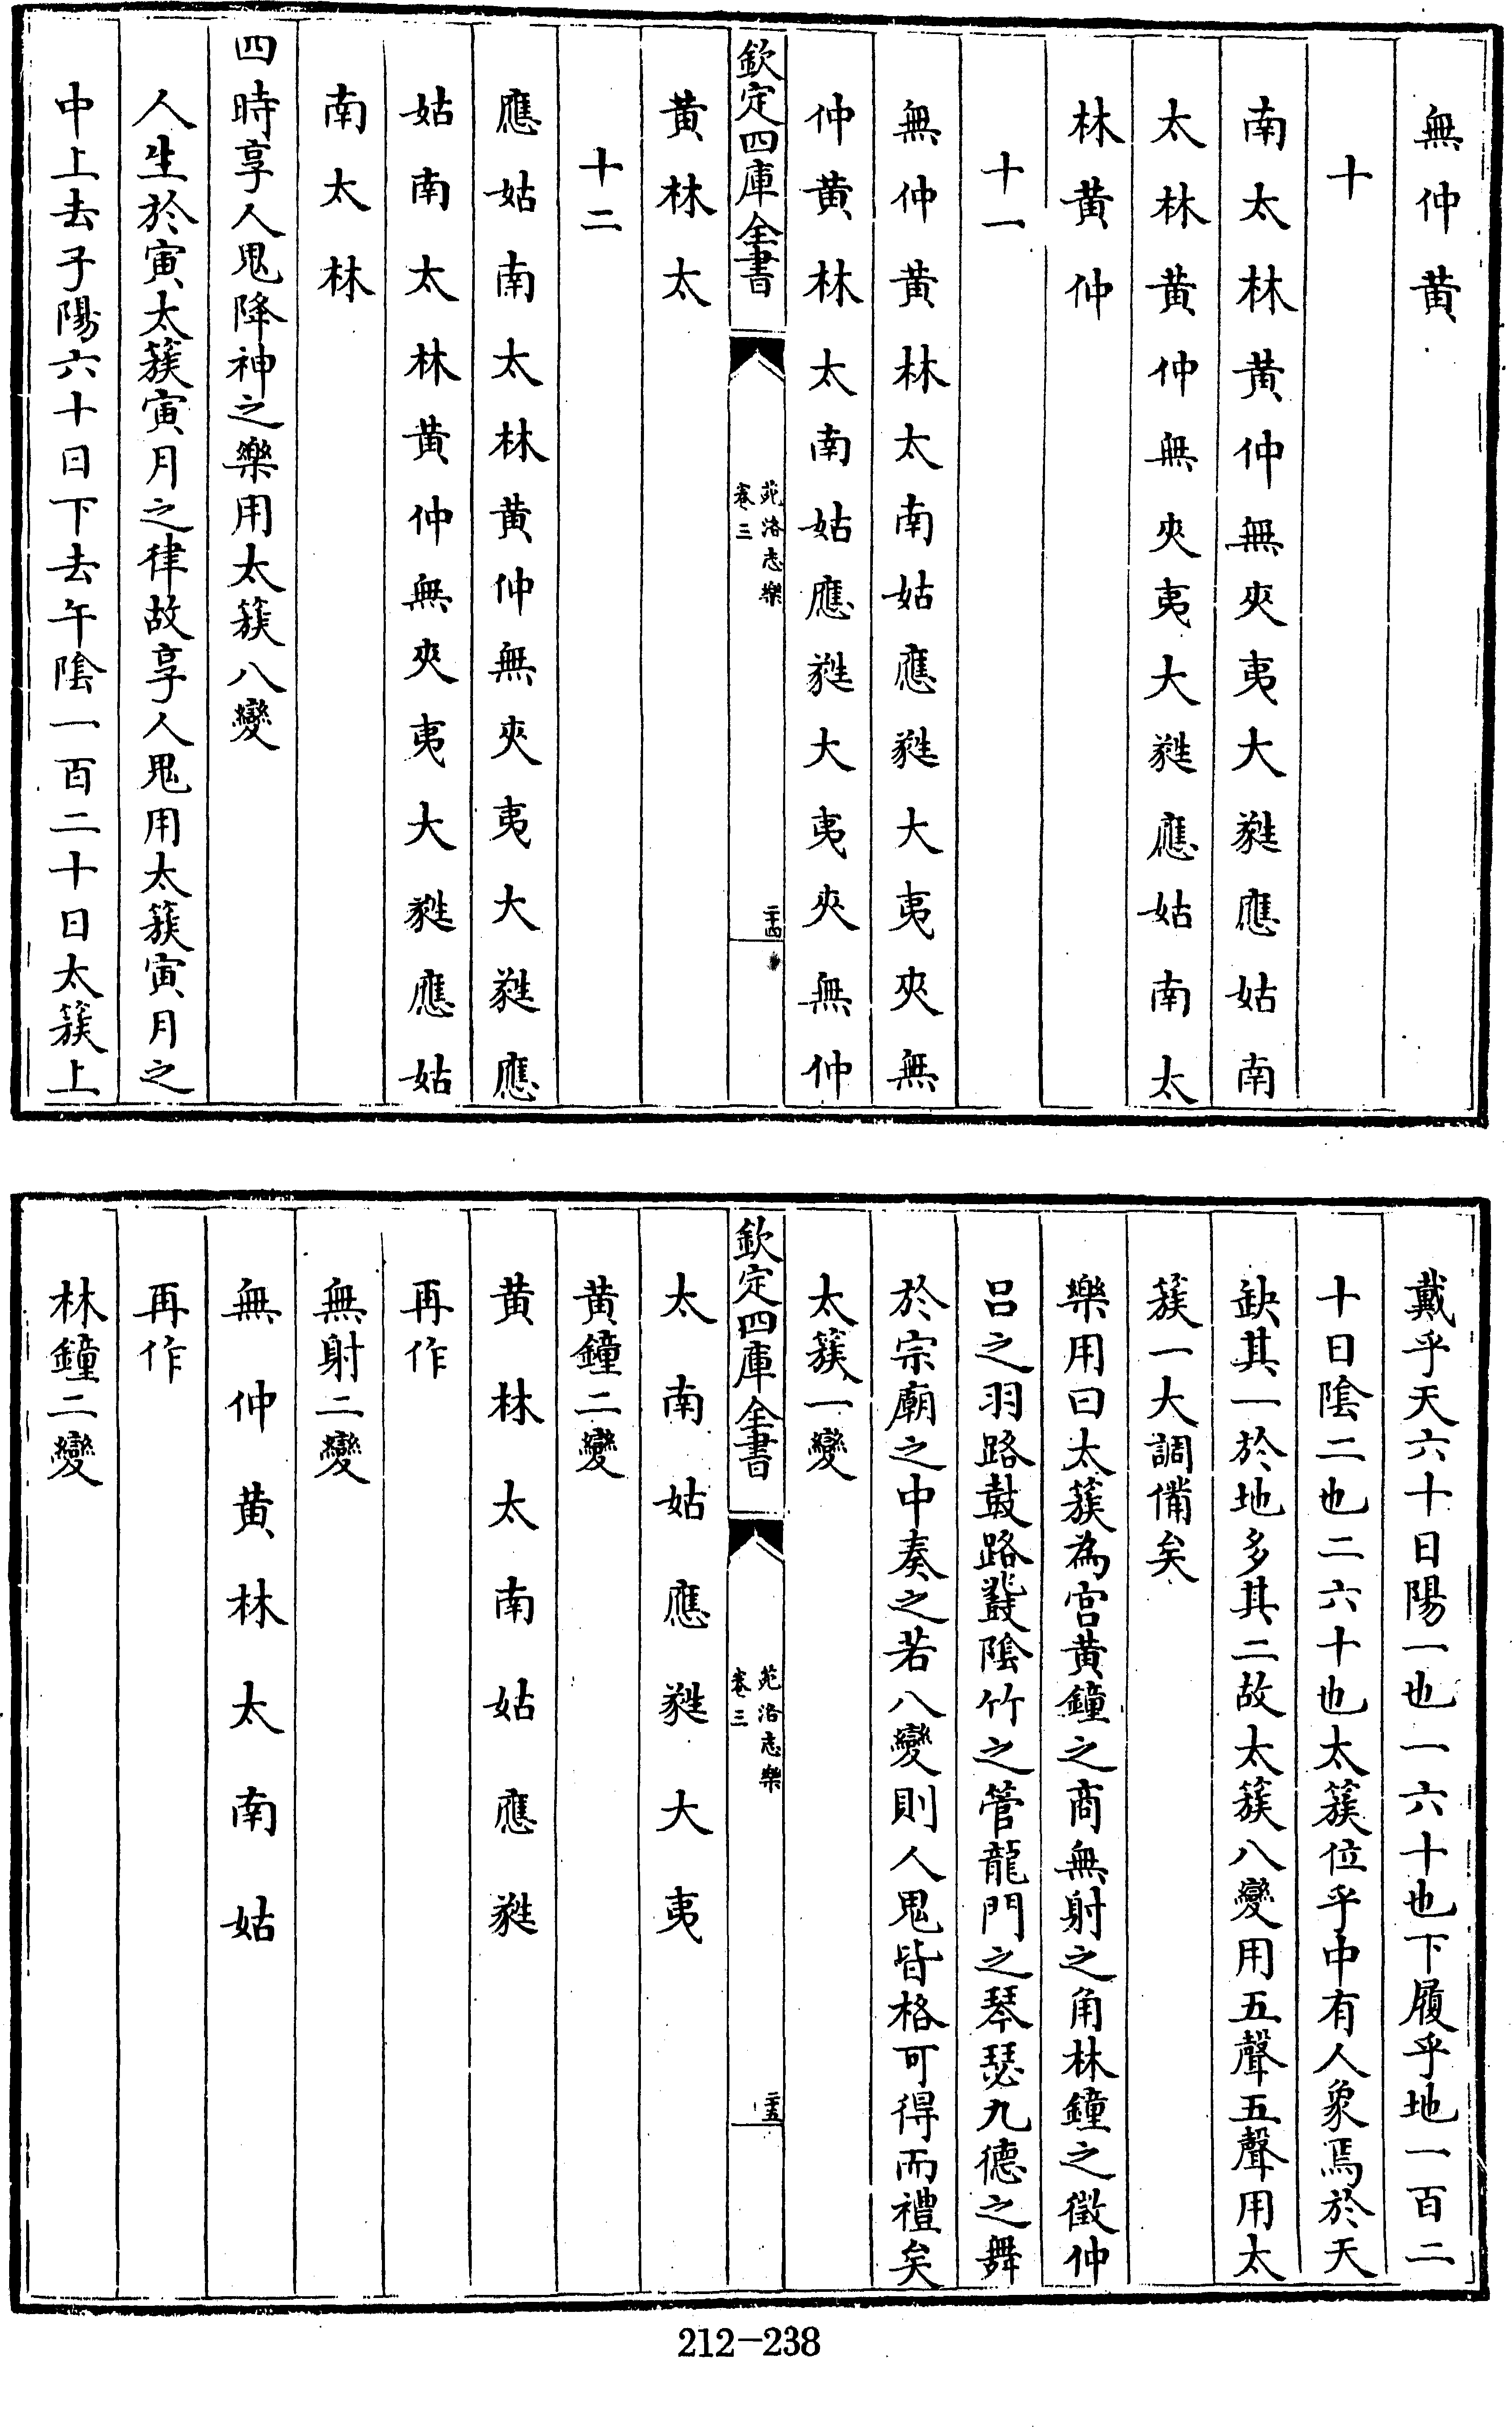 無仲黃
十
南太林黃仲無夾夷大蕤應姑南
太林黃仲無夾夷大蕤應姑南太
林黃仲
十一
無仲黃林太南姑應蕤大夷夾無
仲黃林太南姑應蕤大夷夾無仲
欽定四庫全書
苑洛志樂
卷三
二十四
黃林太
十二
應姑南太林黃仲無夾夷大蕤應
姑南太林黃仲無夾夷大蕤應姑
南太林
四時享人鬼降神之樂用太簇八變
人生於寅太簇寅月之律故享人鬼用太簇寅月之
中上去子陽六十日下去午陰一百二十日太簇上
戴乎天六十日陽一也一六十也下履乎地一百二
十日陰二也二六十也太簇位乎中有人象焉於天
缺其一於地多其二故太簇八變用五聲五聲用太
簇一大調備矣
樂用曰太簇為宮黃鐘之商無射之角林鐘之徵仲
呂之羽路鼓路鼗陰竹之管龍門之琴瑟九德之舞
於宗廟之中奏之若八變則人鬼皆格可得而禮矣
太簇一變
欽定四庫全書
苑洛志樂
卷三
二十五
太南姑應蕤大夷
黃鐘二變
黃林太南姑應蕤
再作
無射二變
無仲黃林太南姑
再作
林鐘二變
212-238